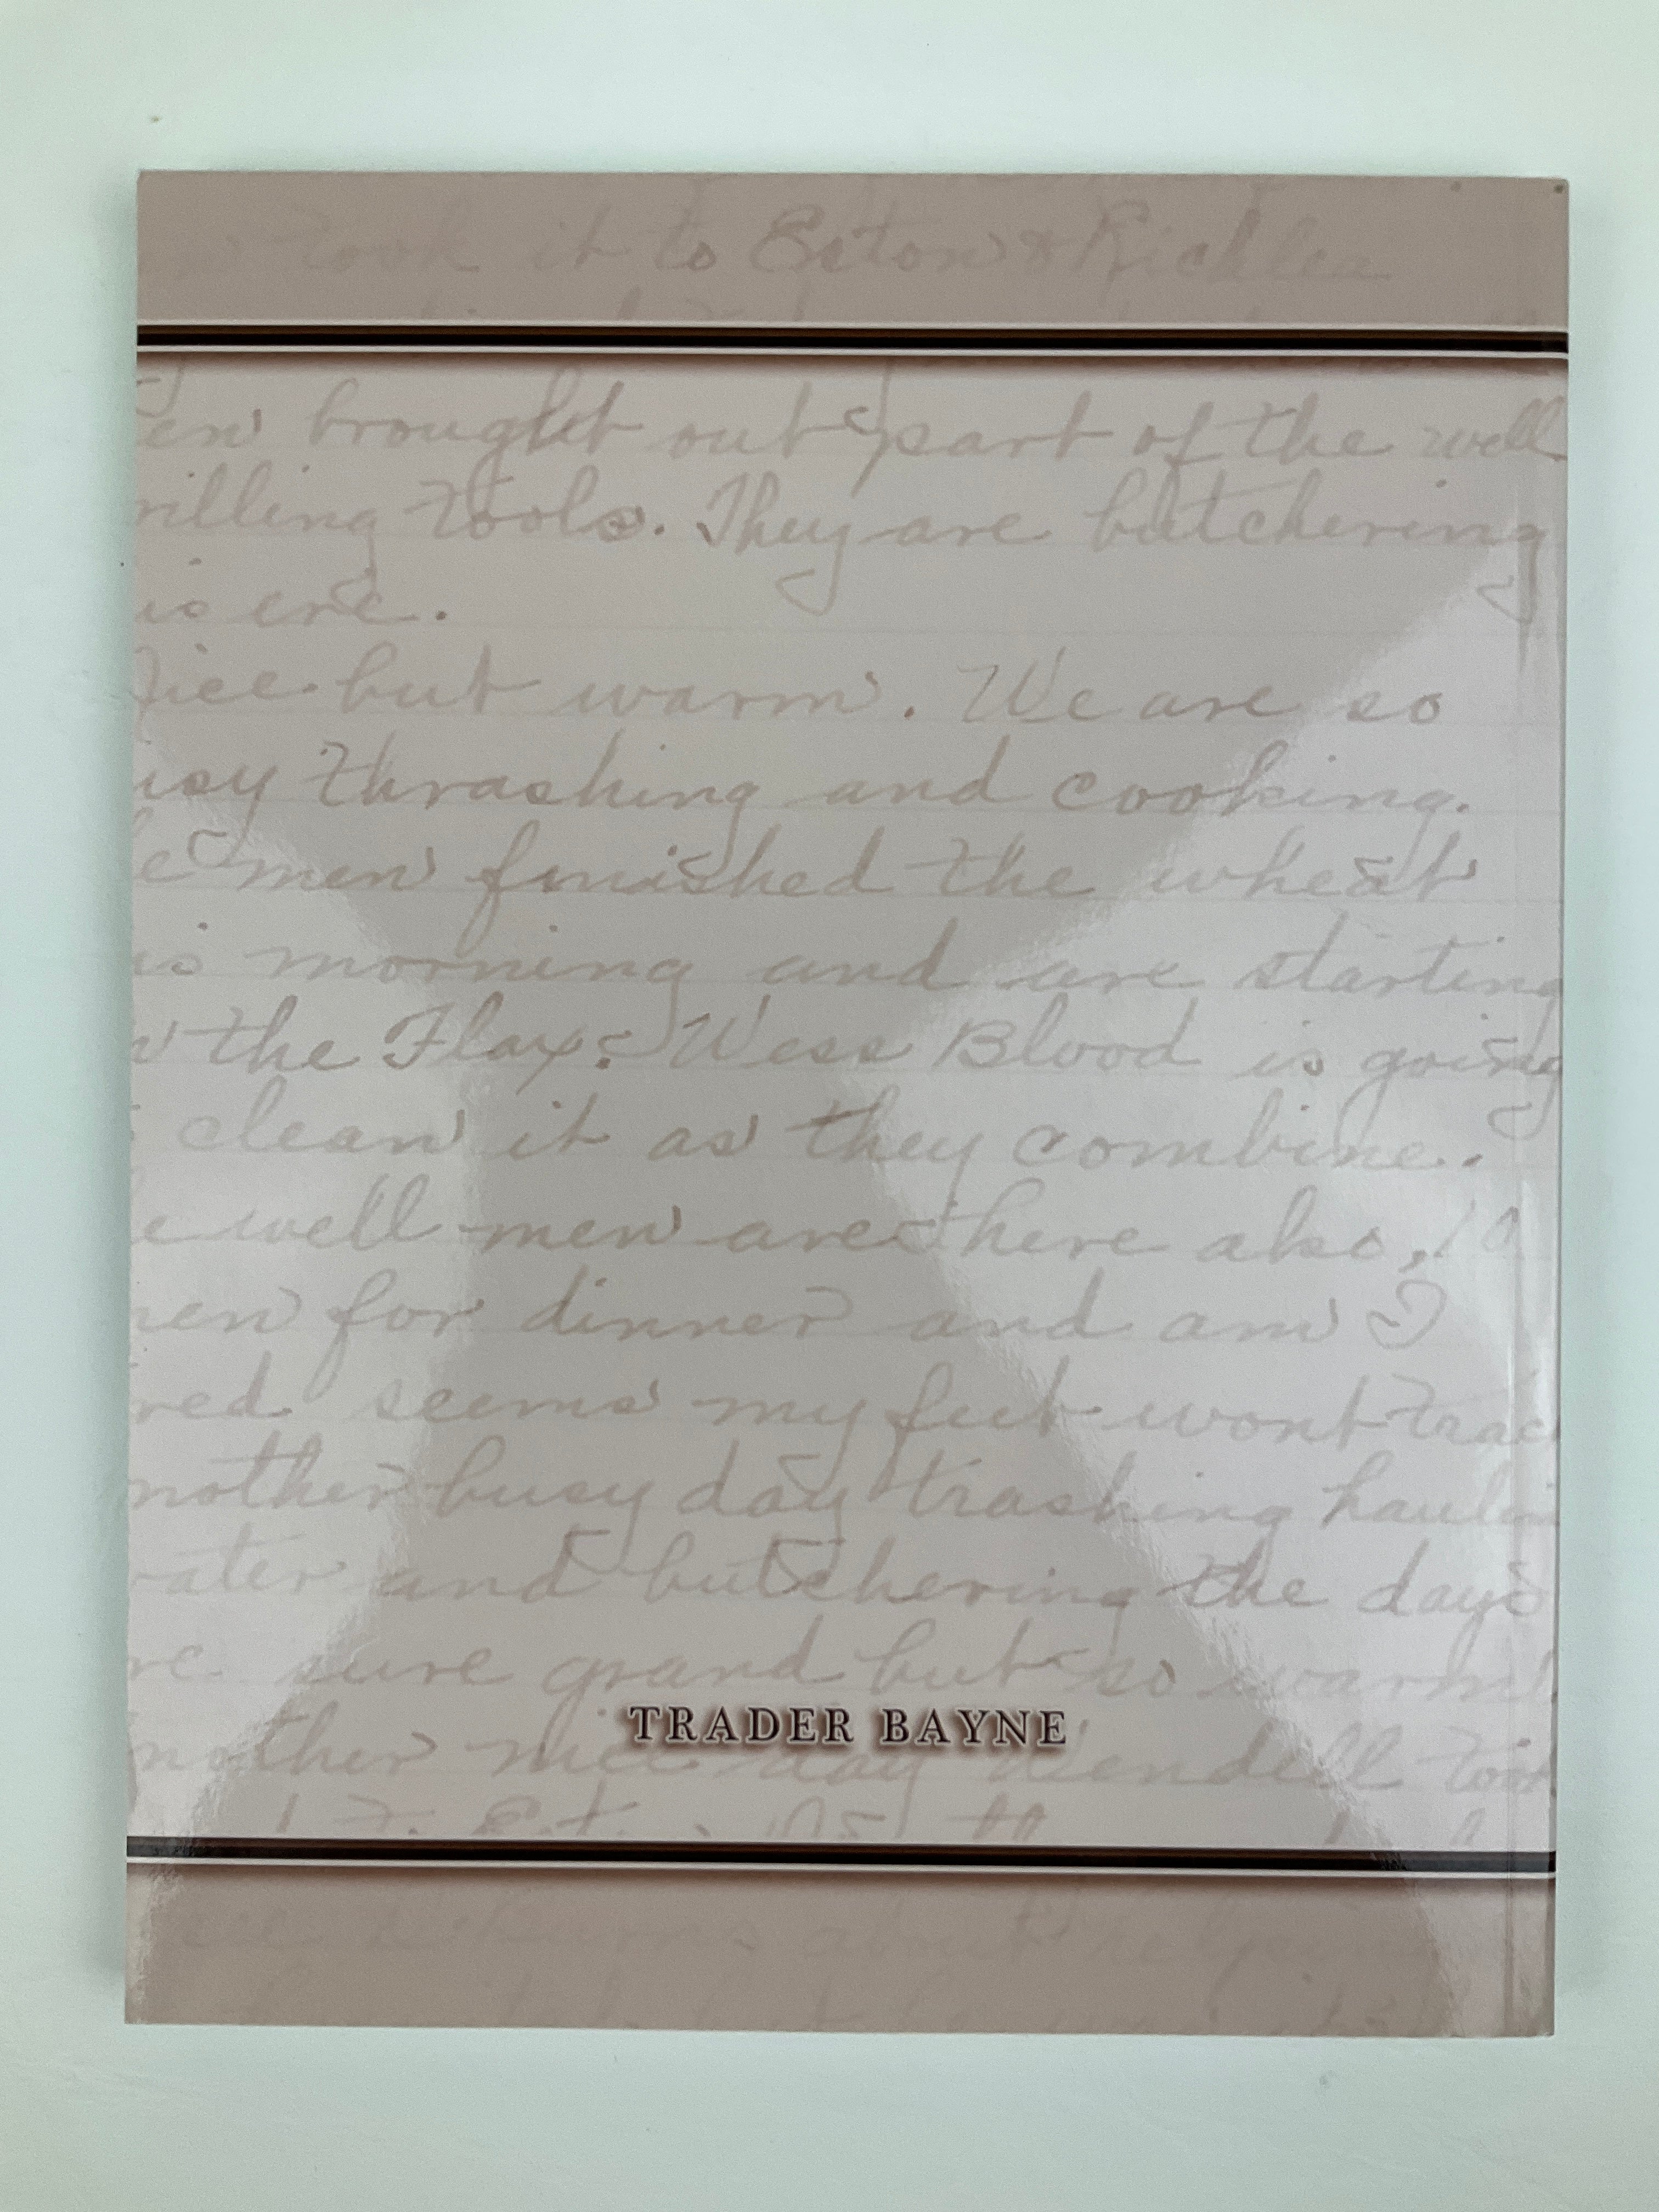 took it to Eaton &
en brought out part of the well
rilling tools. They are butchering
is eve.
ice but warm. We are so
usy thrashing and cooking.
e men finished the wheat
is morning and are starting
the Flax. Wess Blood is going
clean it as they combine.
e well men are here also, 10
en for dinner and am I
red seems my feet wont trac
nother busy day trashing haulin
ater and butchering the days
re sure grand but so warm
TRADER BAYNE
nother nice day Wendell took